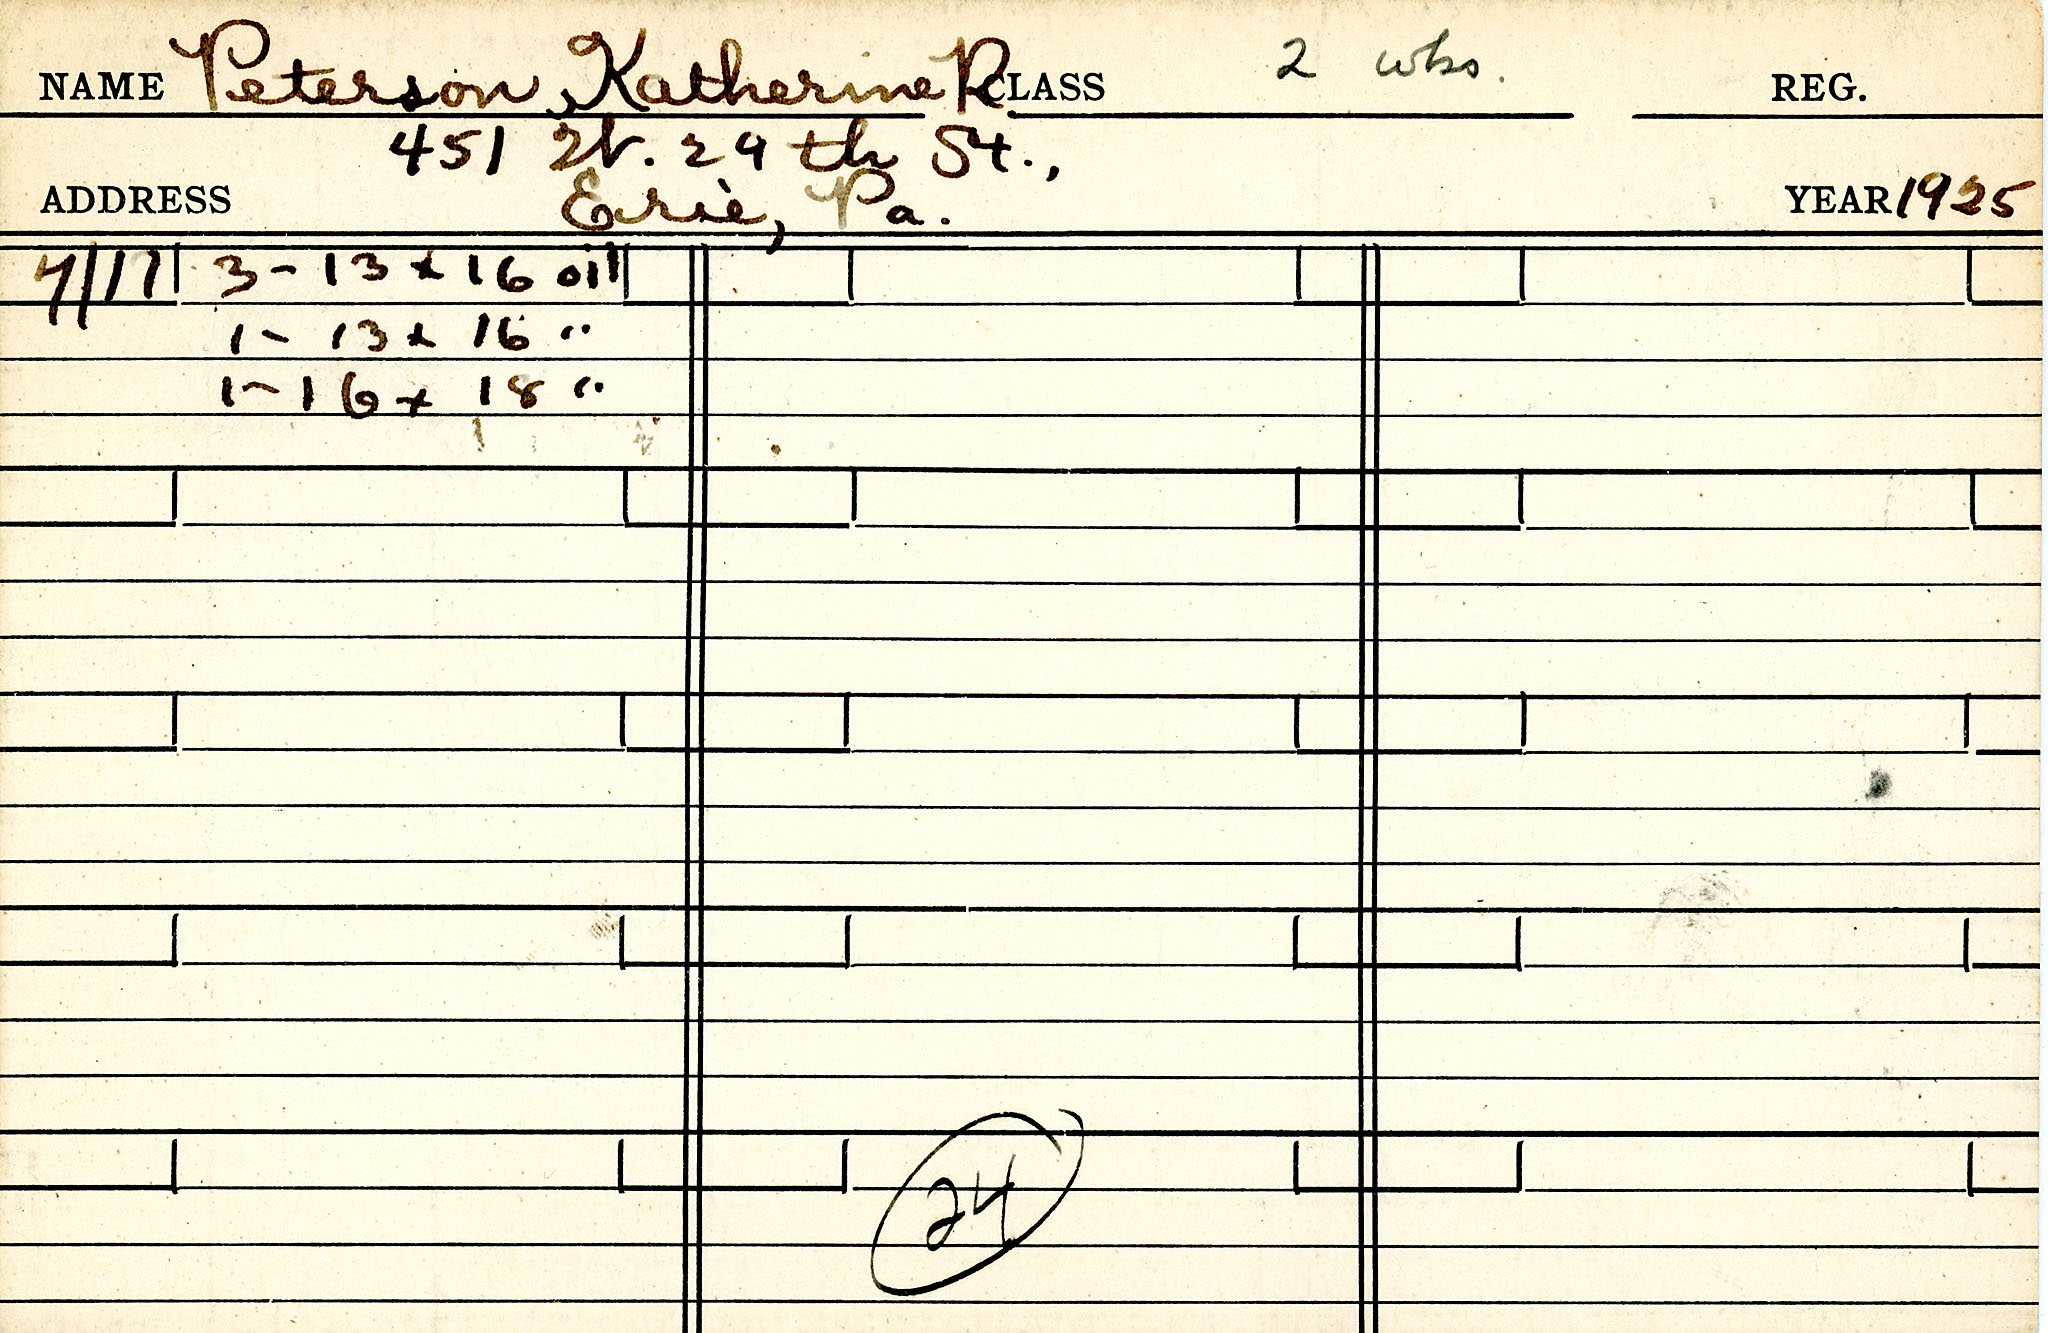 NAME Peterson, Katherine R. CLASS 2 wks. REG.
451 W. 29th St.,
ADDRESS Erie, Pa. YEAR 1925
7/17 3 - 13 x 16 oil
1 - 13 x 16 "
1 - 16 x 18 "
24